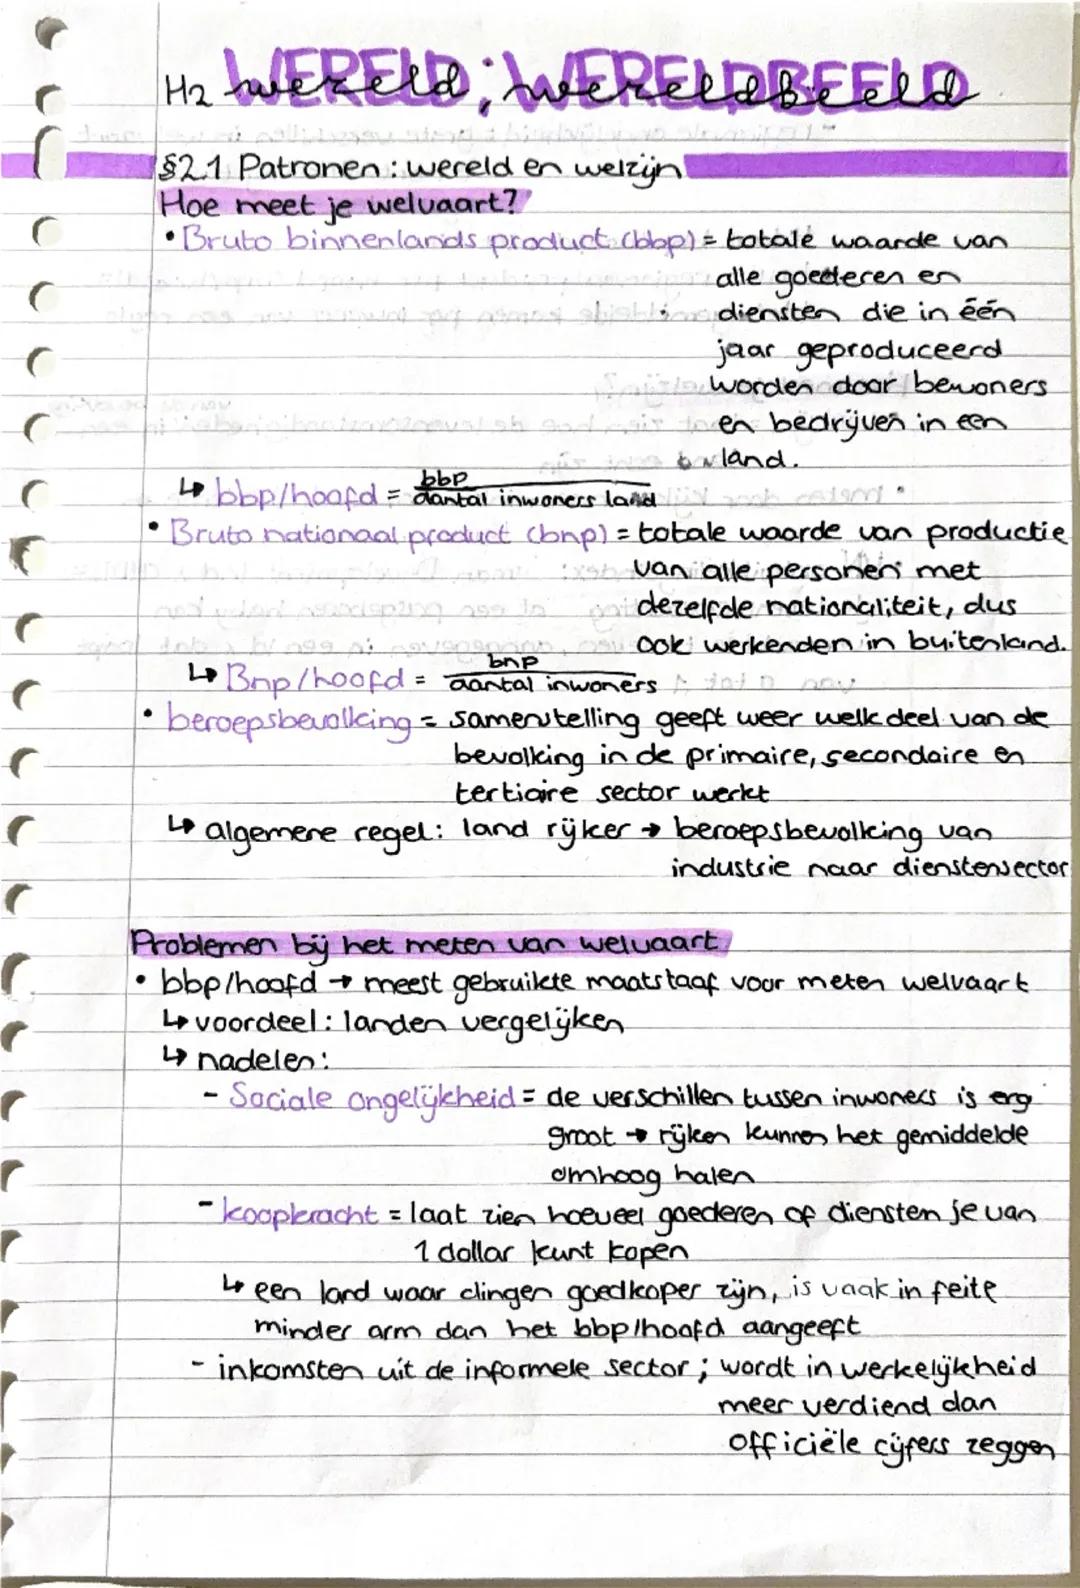 H2 wereld; wereldbeeld
§2.1 Patronen: wereld en welzijn
Hoe meet je welvaart?
• Bruto binnenlands product (bbp) = totale waarde van
alle goederen en
diensten die in één
jaar geproduceerd
worden door bewoners
en bedrijven in een
land.
↳ bbp/hoofd = bbp / aantal inwoners land
• Bruto nationaal product (bnp) = totale waarde van productie
van alle personen met
dezelfde nationaliteit, dus
ook werkenden in buitenland.
↳ Bnp/hoofd = bnp / aantal inwoners
• beroepsbevolking = samenstelling geeft weer welk deel van de
bevolking in de primaire, secondaire en
tertiaire sector werkt
↳ algemene regel: land rijker → beroepsbevolking van
industrie naar dienstensector
Problemen bij het meten van welvaart
• bbp/hoofd → meest gebruikte maatstaaf voor meten welvaart
↳ voordeel: landen vergelijken
↳ nadelen:
- Sociale ongelijkheid = de verschillen tussen inwoners is erg
groot → rijken kunnen het gemiddelde
omhoog halen
- koopkracht = laat zien hoeveel goederen of diensten je van
1 dollar kunt kopen
↳ een land waar dingen goedkoper zijn, is vaak in feite
minder arm dan het bbp/hoofd aangeeft
- inkomsten uit de informele sector; wordt in werkelijkheid
meer verdiend dan
officiële cijfers zeggen